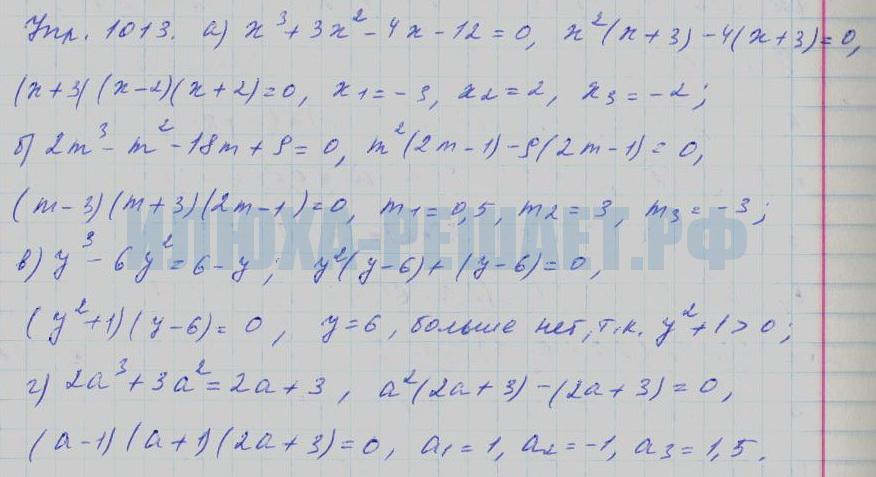 Упр. 1013. а) x³ + 3x² - 4x - 12 = 0, x²(x+3) - 4(x+3) = 0,
(x+3)(x-2)(x+2) = 0, x₁ = -3, x₂ = 2, x₃ = -2;
б) 2m³ - m² - 18m + 9 = 0, m²(2m-1) - 9(2m-1) = 0,
(m-3)(m+3)(2m-1) = 0, m₁ = 0,5, m₂ = 3, m₃ = -3;
ИЛЮХА-РЕШАЕТ.РФ
в) y³ - 6y² = 6 - y; y²(y-6) + (y-6) = 0,
(y²+1)(y-6) = 0, y = 6, больше нет, т.к. y² + 1 > 0;
г) 2a³ + 3a² = 2a + 3, a²(2a+3) - (2a+3) = 0,
(a-1)(a+1)(2a+3) = 0, a₁ = 1, a₂ = -1, a₃ = 1,5.